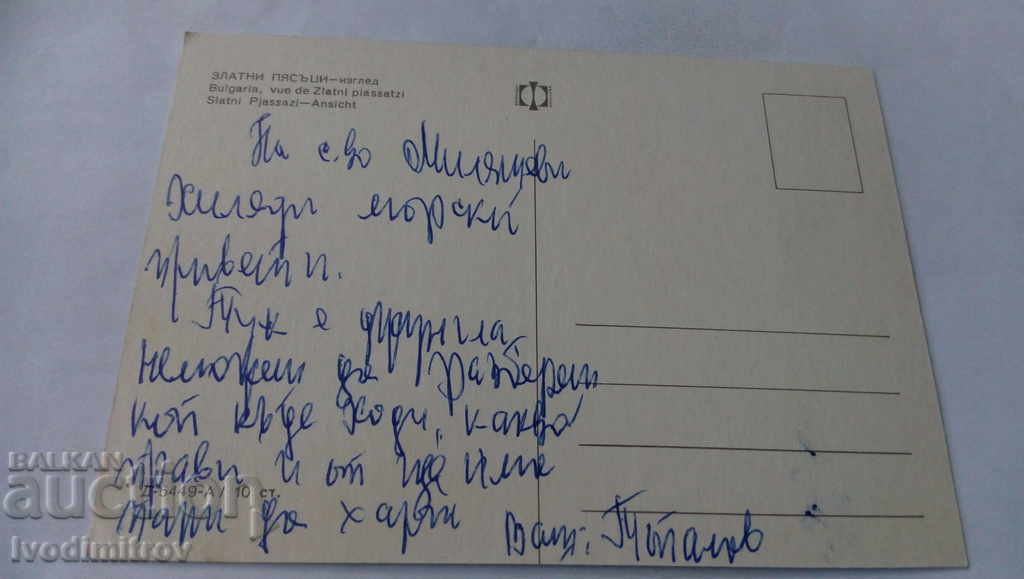 ЗЛАТНИ ПЯСЪЦИ—изглед
Bulgaria, vue de Zlatni piassatzi
Slatni Pjassazi—Ansicht
На с.во Милянови
Хиляди морски
привети.
Тук е джунгла
неможеш да разбереш
кой къде ходи, какво
прави и от где има
пари да харчи
Ваш: Тъпанов
Д-5449-А / 10 ст.
BALKAN
auction
Ivodimitrov